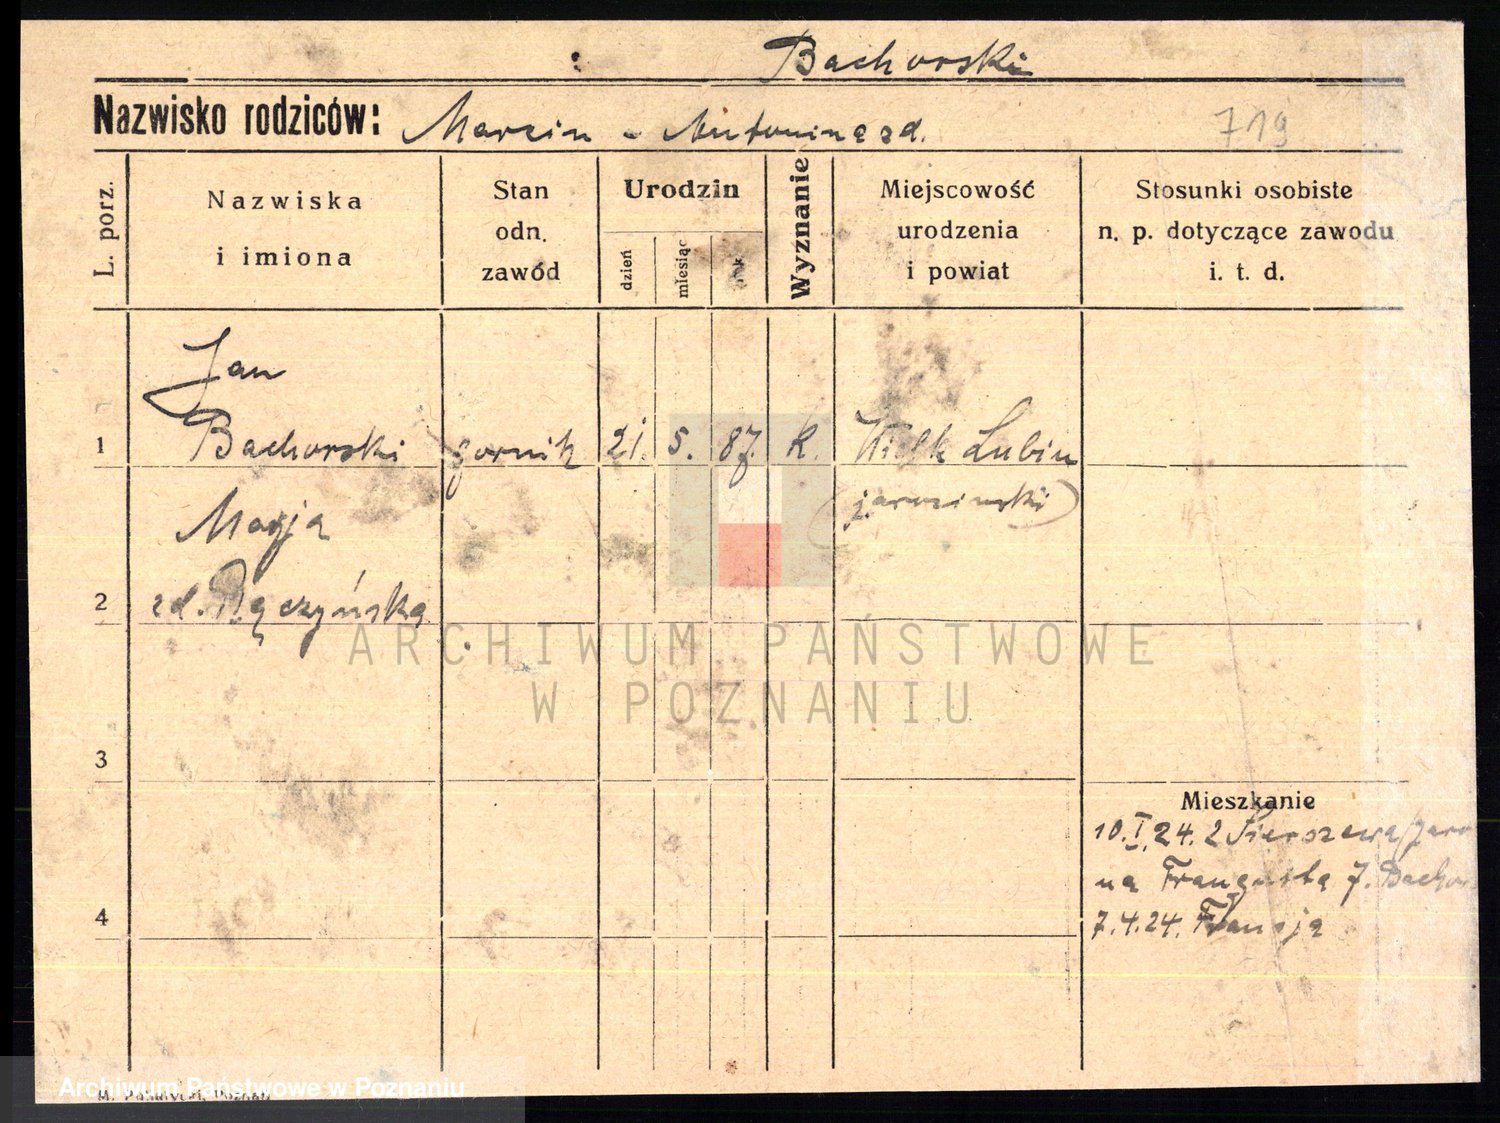 Bachorski
Nazwisko rodziców: Marcin - Antonina zd.
719
L. porz.
Nazwiska
i imiona
Stan
odn.
zawód
Urodzin
dzień
miesiąc
Wyznanie
Miejscowość
urodzenia
i powiat
Stosunki osobiste
n. p. dotyczące zawodu
i. t. d.
Jan
1 Bachorski górnik 21. 5. 87. k. Wielk Lubin
(jarociński)
Marja
2 zd. Pączyńska
ARCHIWUM PAŃSTWOWE
W POZNANIU
3
Mieszkanie
10.I.24. z
na 7. Bachor
4
7.4.24. Francja
Archiwum Państwowe w Poznaniu